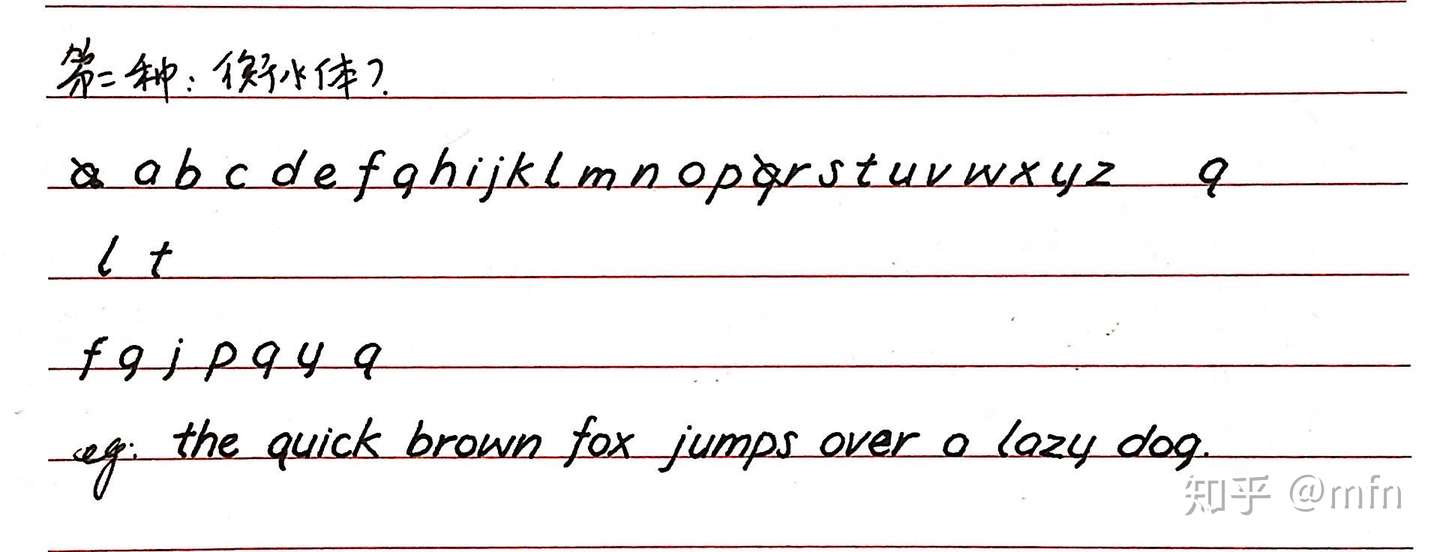 第二种：衡水体？
a a b c d e f g h i j k l m n o p q r s t u v w x y z q
l t
f g j p q y q
eg: the quick brown fox jumps over a lazy dog.
知乎 @mfn